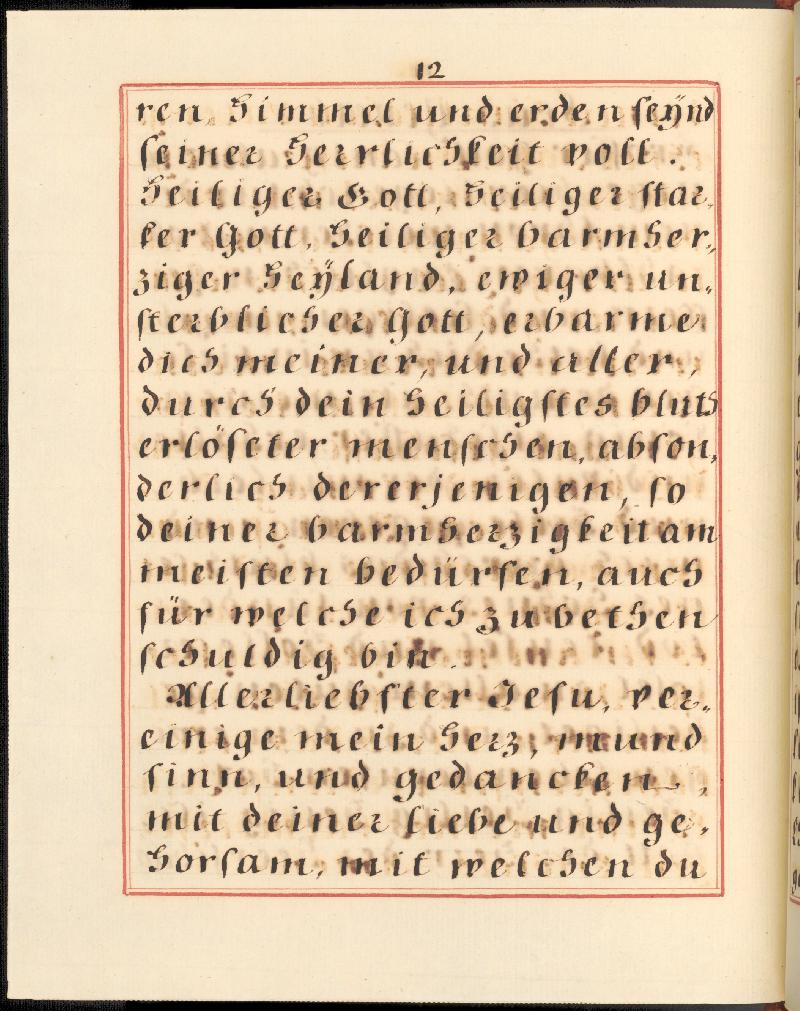 12
ren, Himmel und erden seÿnd
seiner Herrlichkeit voll.
Heiliger Gott, Heiliger star,
ker Gott, Heiliger barmher,
ziger Heÿland, ewiger un,
sterblicher Gott, erbarme
dich meiner, und aller,
durch dein Heiligstes bluth
erlöseter menschen, abson,
derlich dererjenigen, so
deiner barmherzigkeit am
meisten bedürfen, auch
für welche ich zu bethen
schuldig bin.
Allerliebster Jesu, ver,
einige mein Herz, mund
sinn, und gedancken,
mit deiner liebe und ge,
horsam, mit welchen du